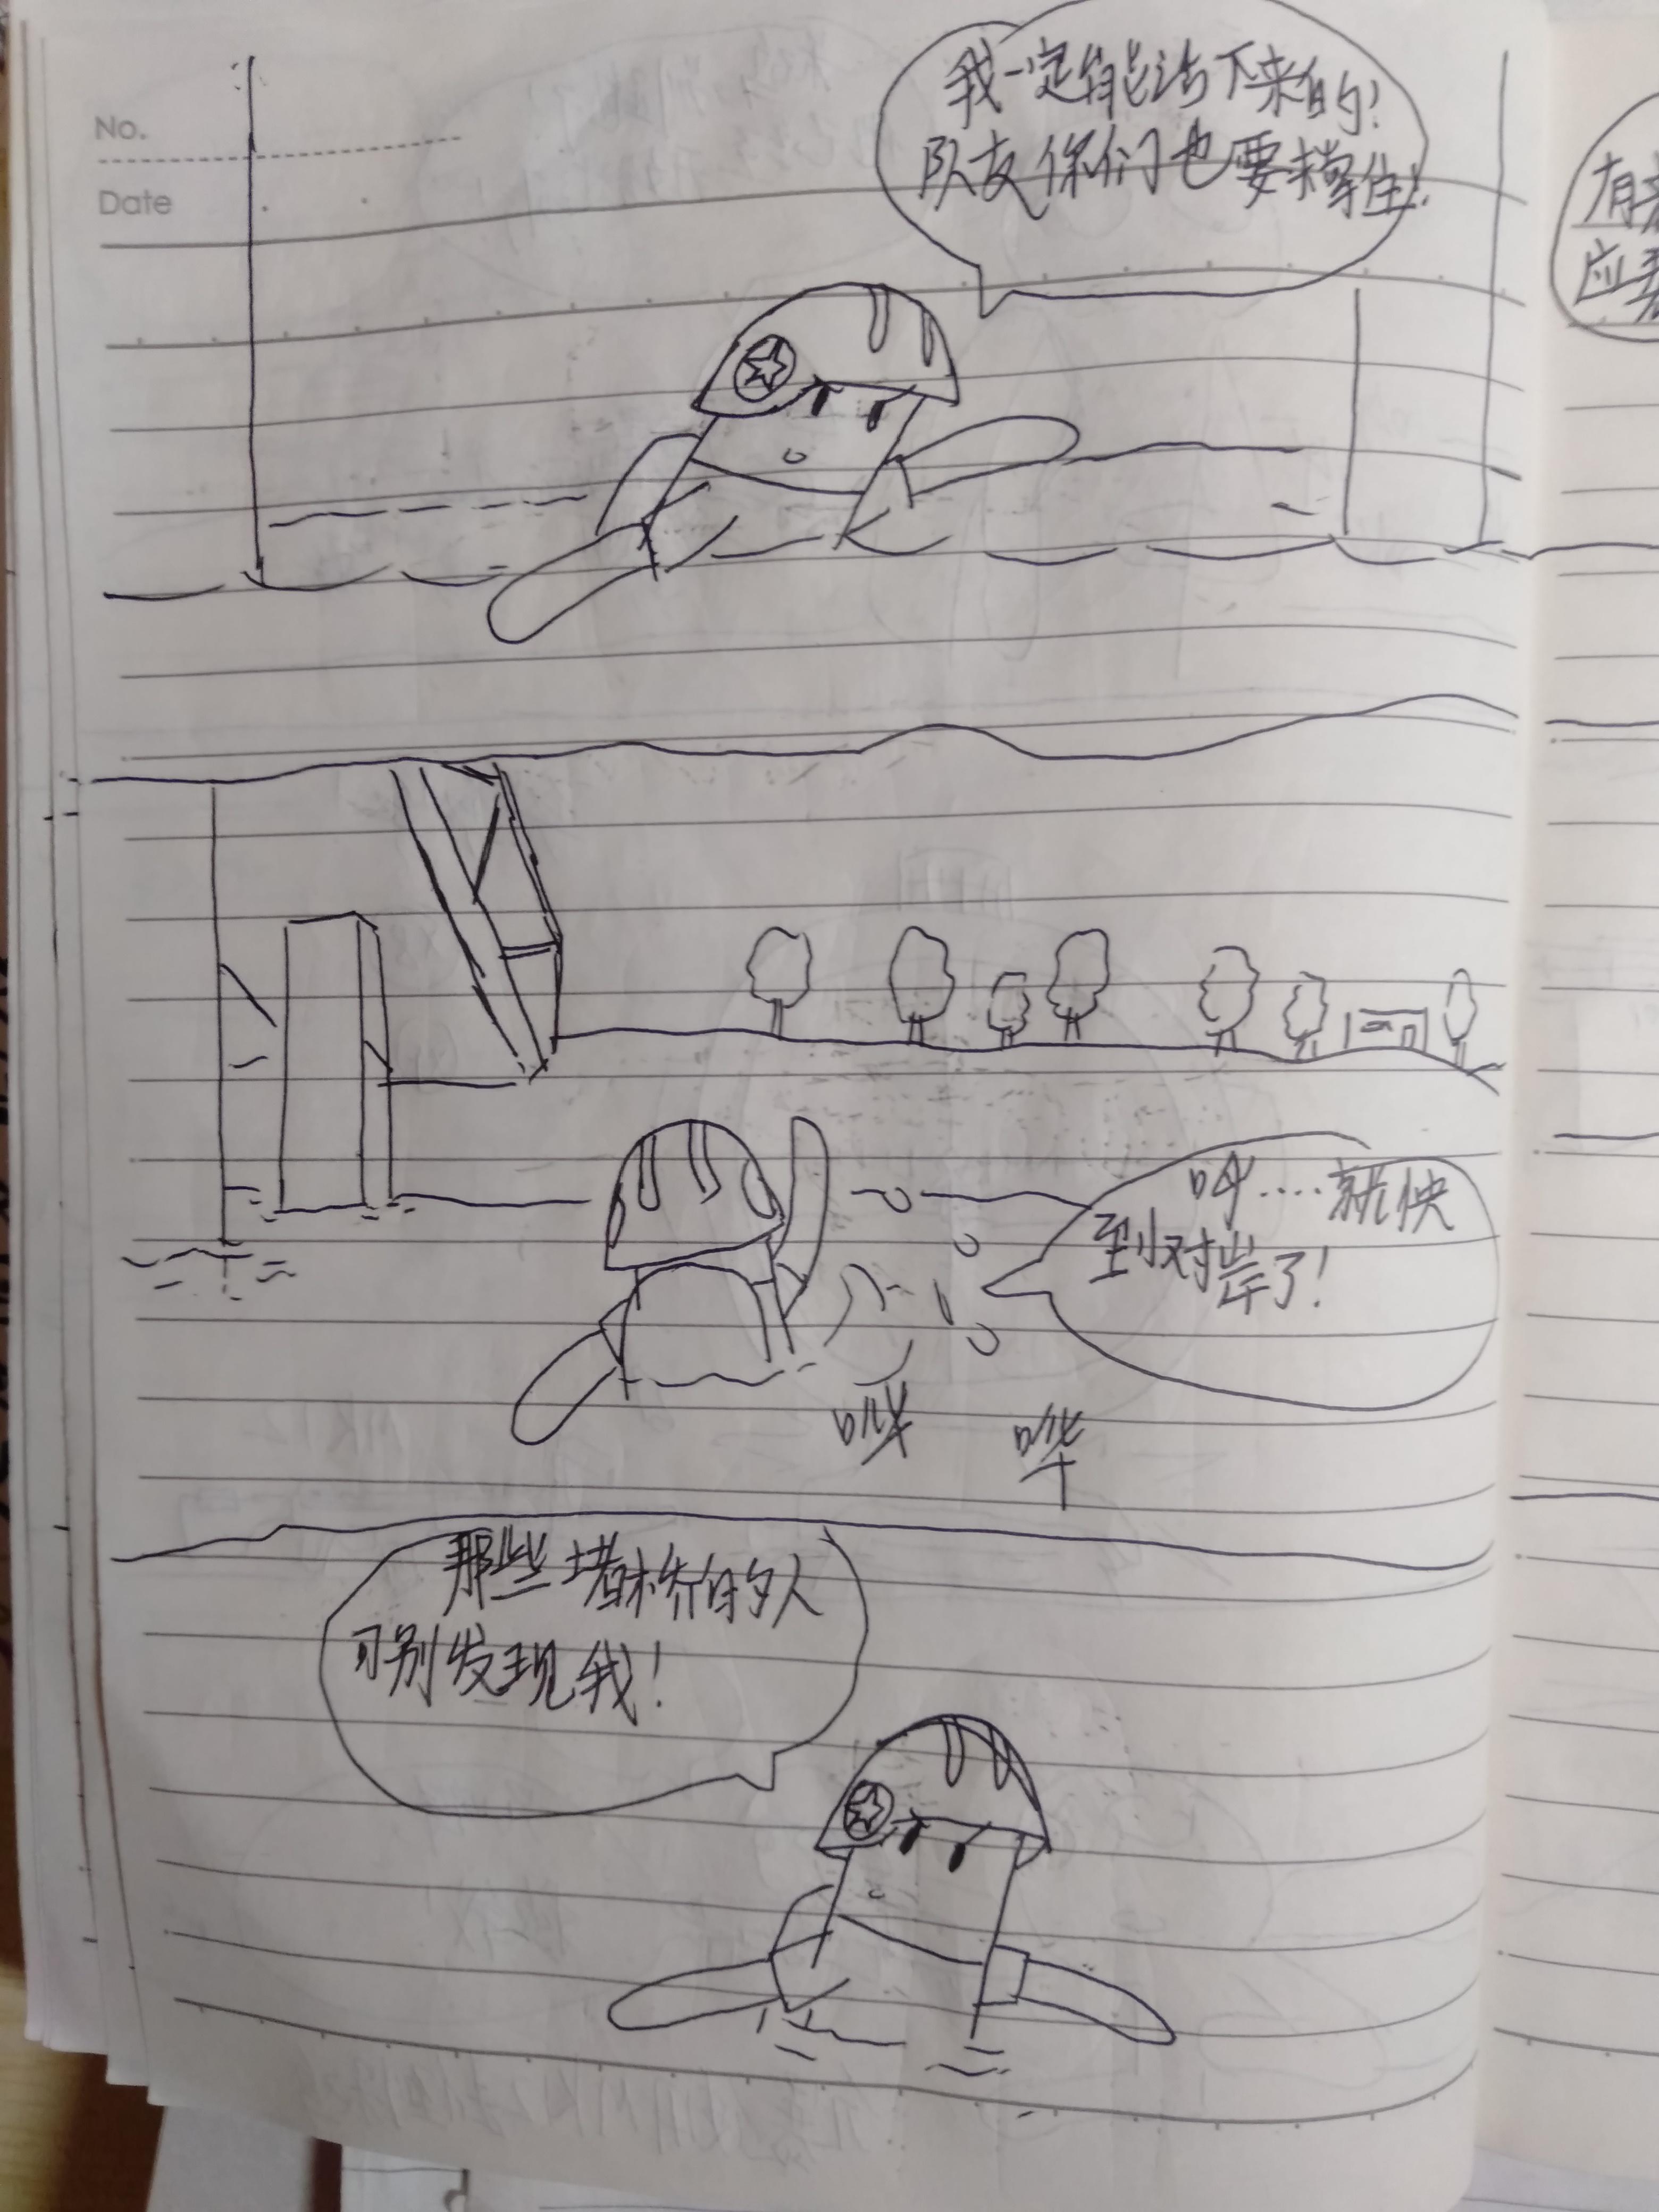 No.
Date
我一定能活下来的！
队友你们也要撑住！
呼....就快
到对岸了！
哗 哗
那些堵桥的人
可别发现我！